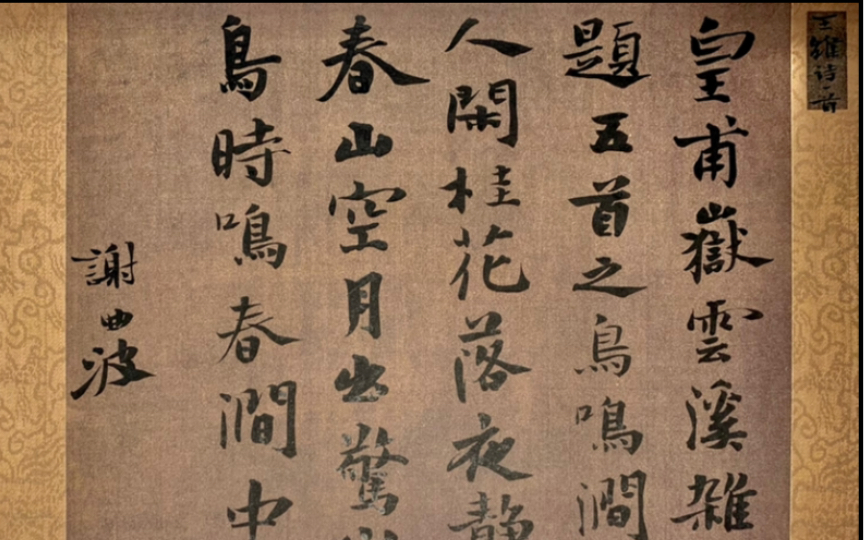 王維诗一首
皇甫嶽雲溪雜
題五首之鳥鳴澗
人閑桂花落夜静
春山空月出驚
鳥時鳴春澗中
謝曲波